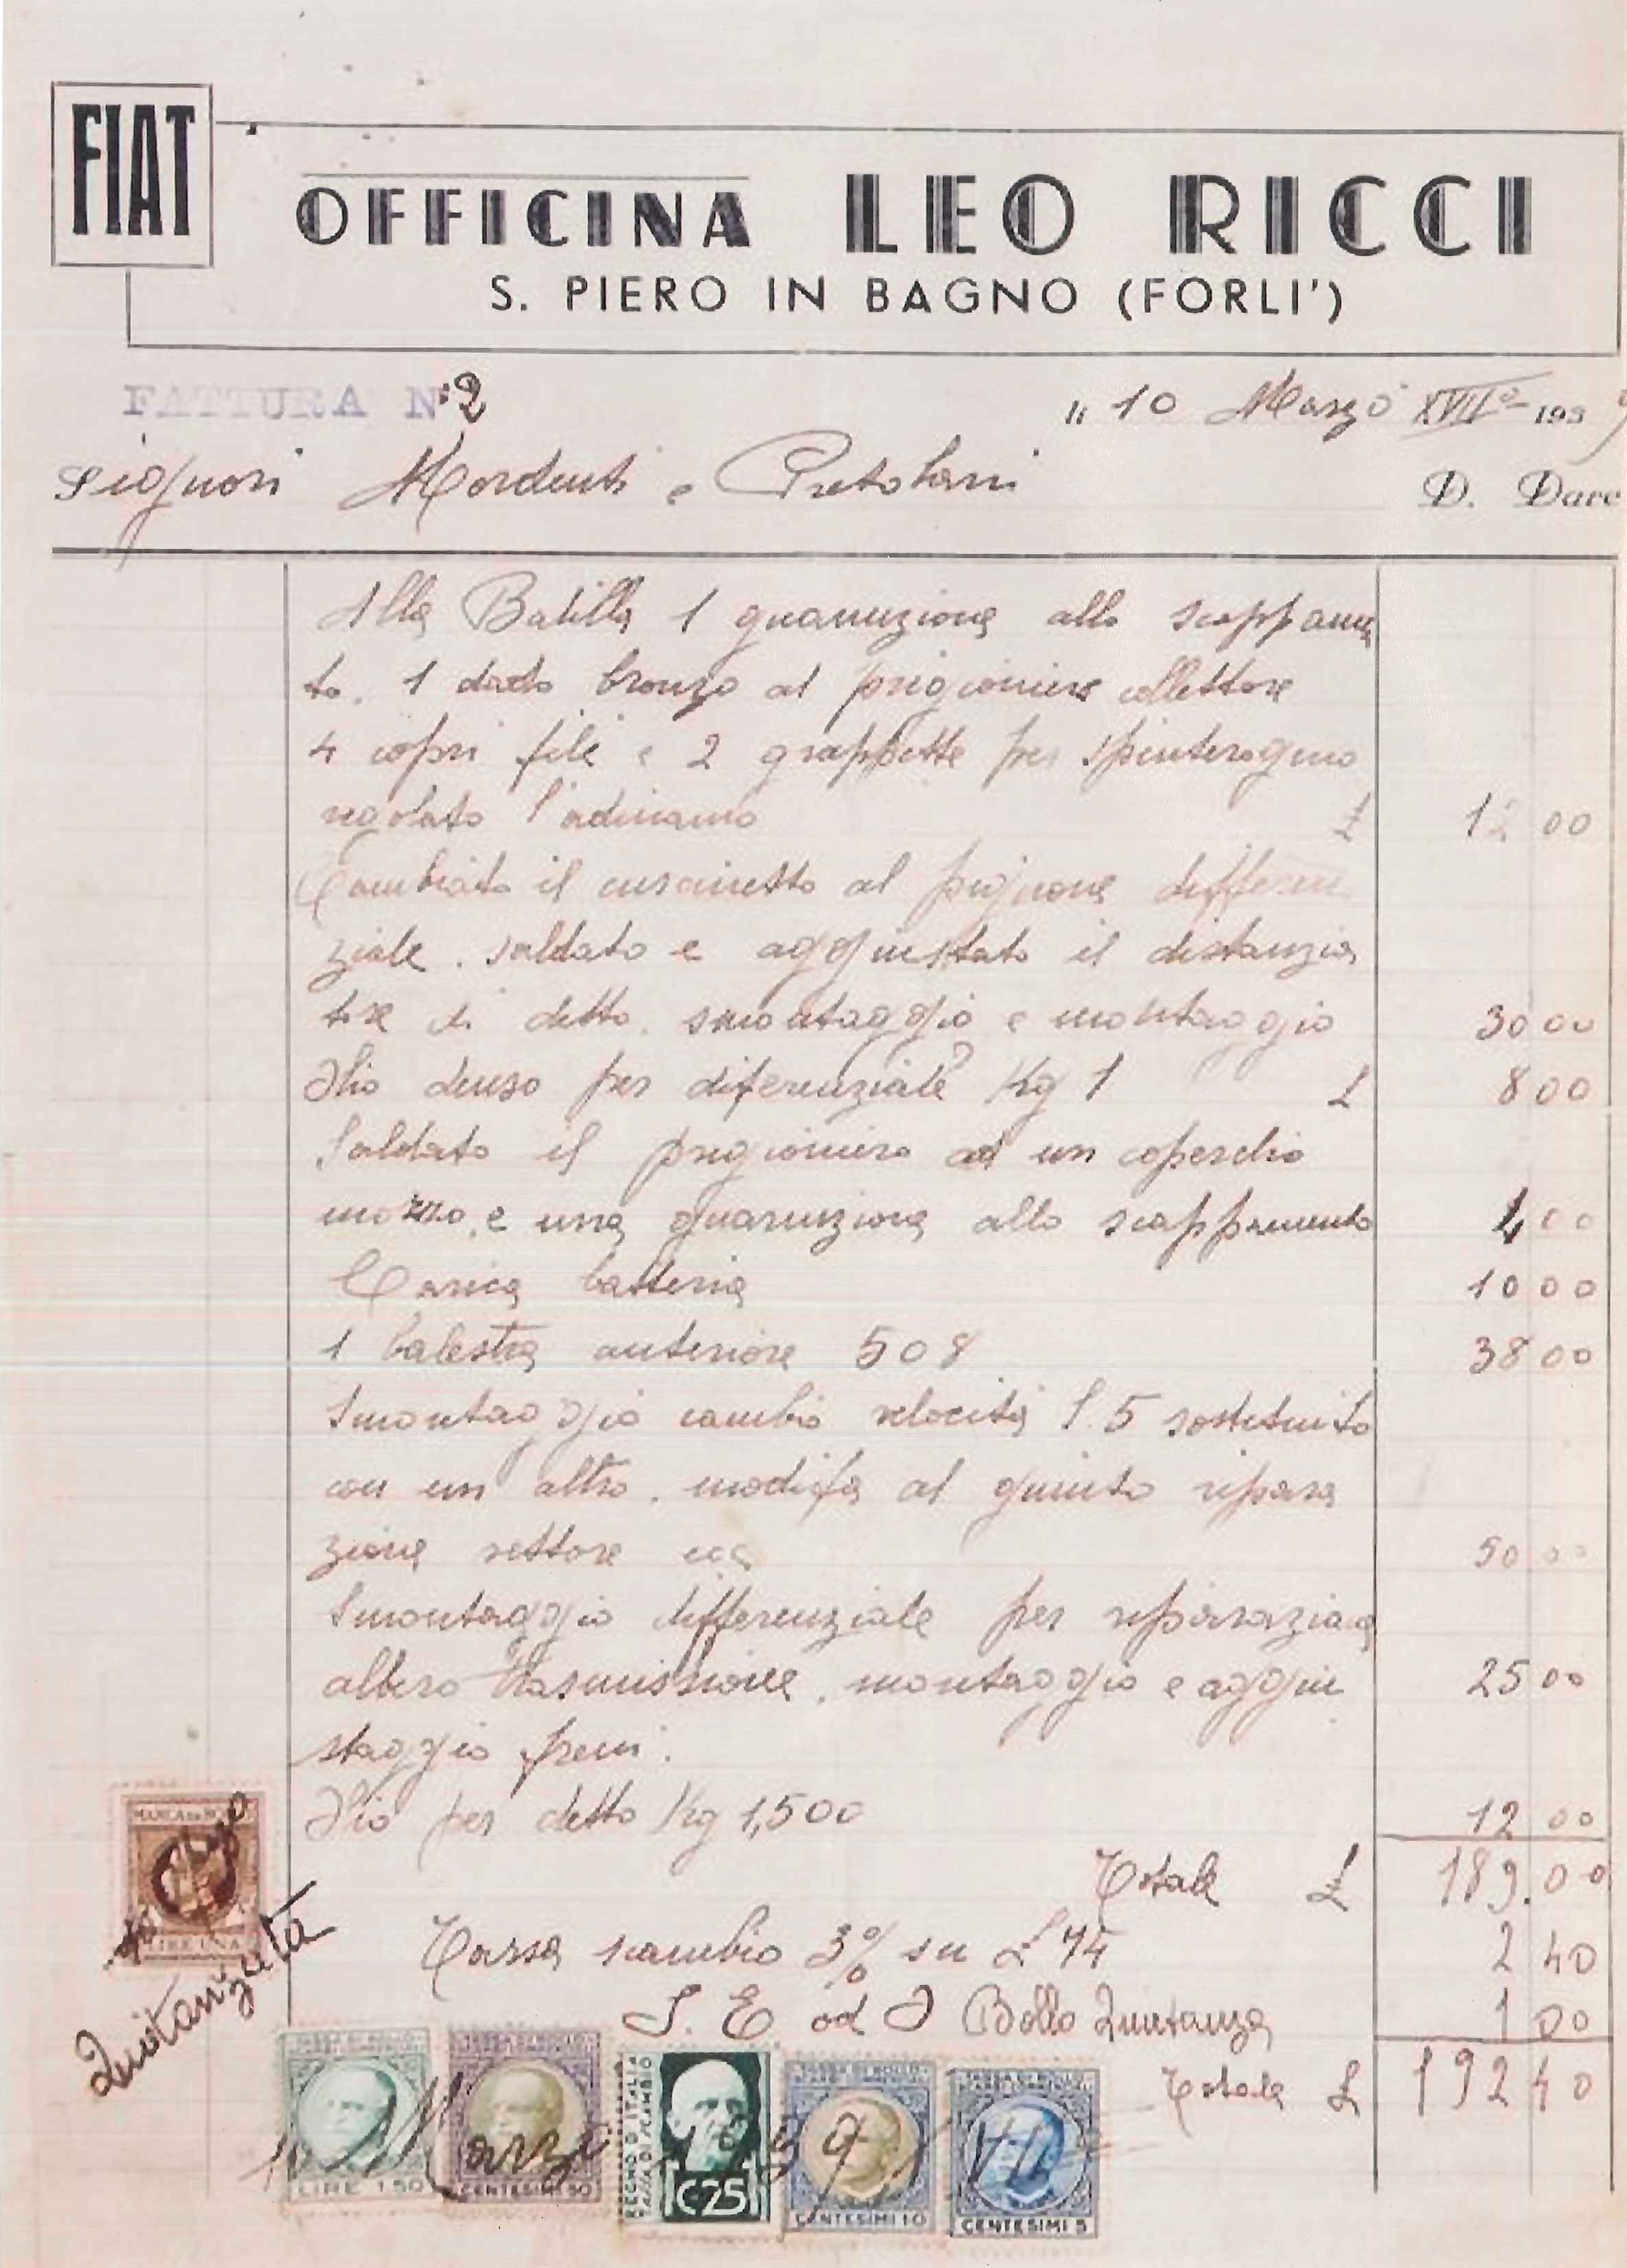 FIAT
OFFICINA LEO RICCI
S. PIERO IN BAGNO (FORLI')
FATTURA N° 2
li 10 Marzo XVII° 1939
Signori Mordenti e Pretolani
D. Dare
Alla Balilla 1 guarnizione allo scappamen
to. 1 dado bronzo al prigioniere collettore
4 copri fili e 2 grappette per spinterogeno
regolato l'adinamo £ 12 00
Cambiato il cuscinetto al pignone differen
ziale. saldato e aggiustato il distanzia
tore di detto. smontaggio e montaggio 30 00
Olio denso per diferenziale Kg 1 £ 8 00
Saldato il prigioniero ad un coperchio
mozzo, e una guarnizione allo scappamento 4 00
Carica batteria 10 00
1 balestra anteriore 508 38 00
Smontaggio cambio velocità S.5 sostituito
con un altro. modifa al giunto ripara
zione settore 50 00
Smontaggio differenziale per riparazione
albero trasmissione. montaggio e aggiu 25 00
staggio freni.
Olio per detto Kg 1,500 12 00
Totale £ 189.00
Tassa scambio 3% su £ 74 2 40
S. E. od O Bollo Quietanza 1 00
Totale £ 192 40
MARCA DA BOLLO
LIRE UNA
Quietanzata
TASSA DI BOLLO
LIRE 1.50
TASSA DI BOLLO
CENTESIMI 50
REGNO D'ITALIA
TASSA DI SCAMBIO
C.25
TASSA DI BOLLO
CENTESIMI 10
TASSA DI BOLLO
CENTESIMI 5
10 Marzo 1939 XVII